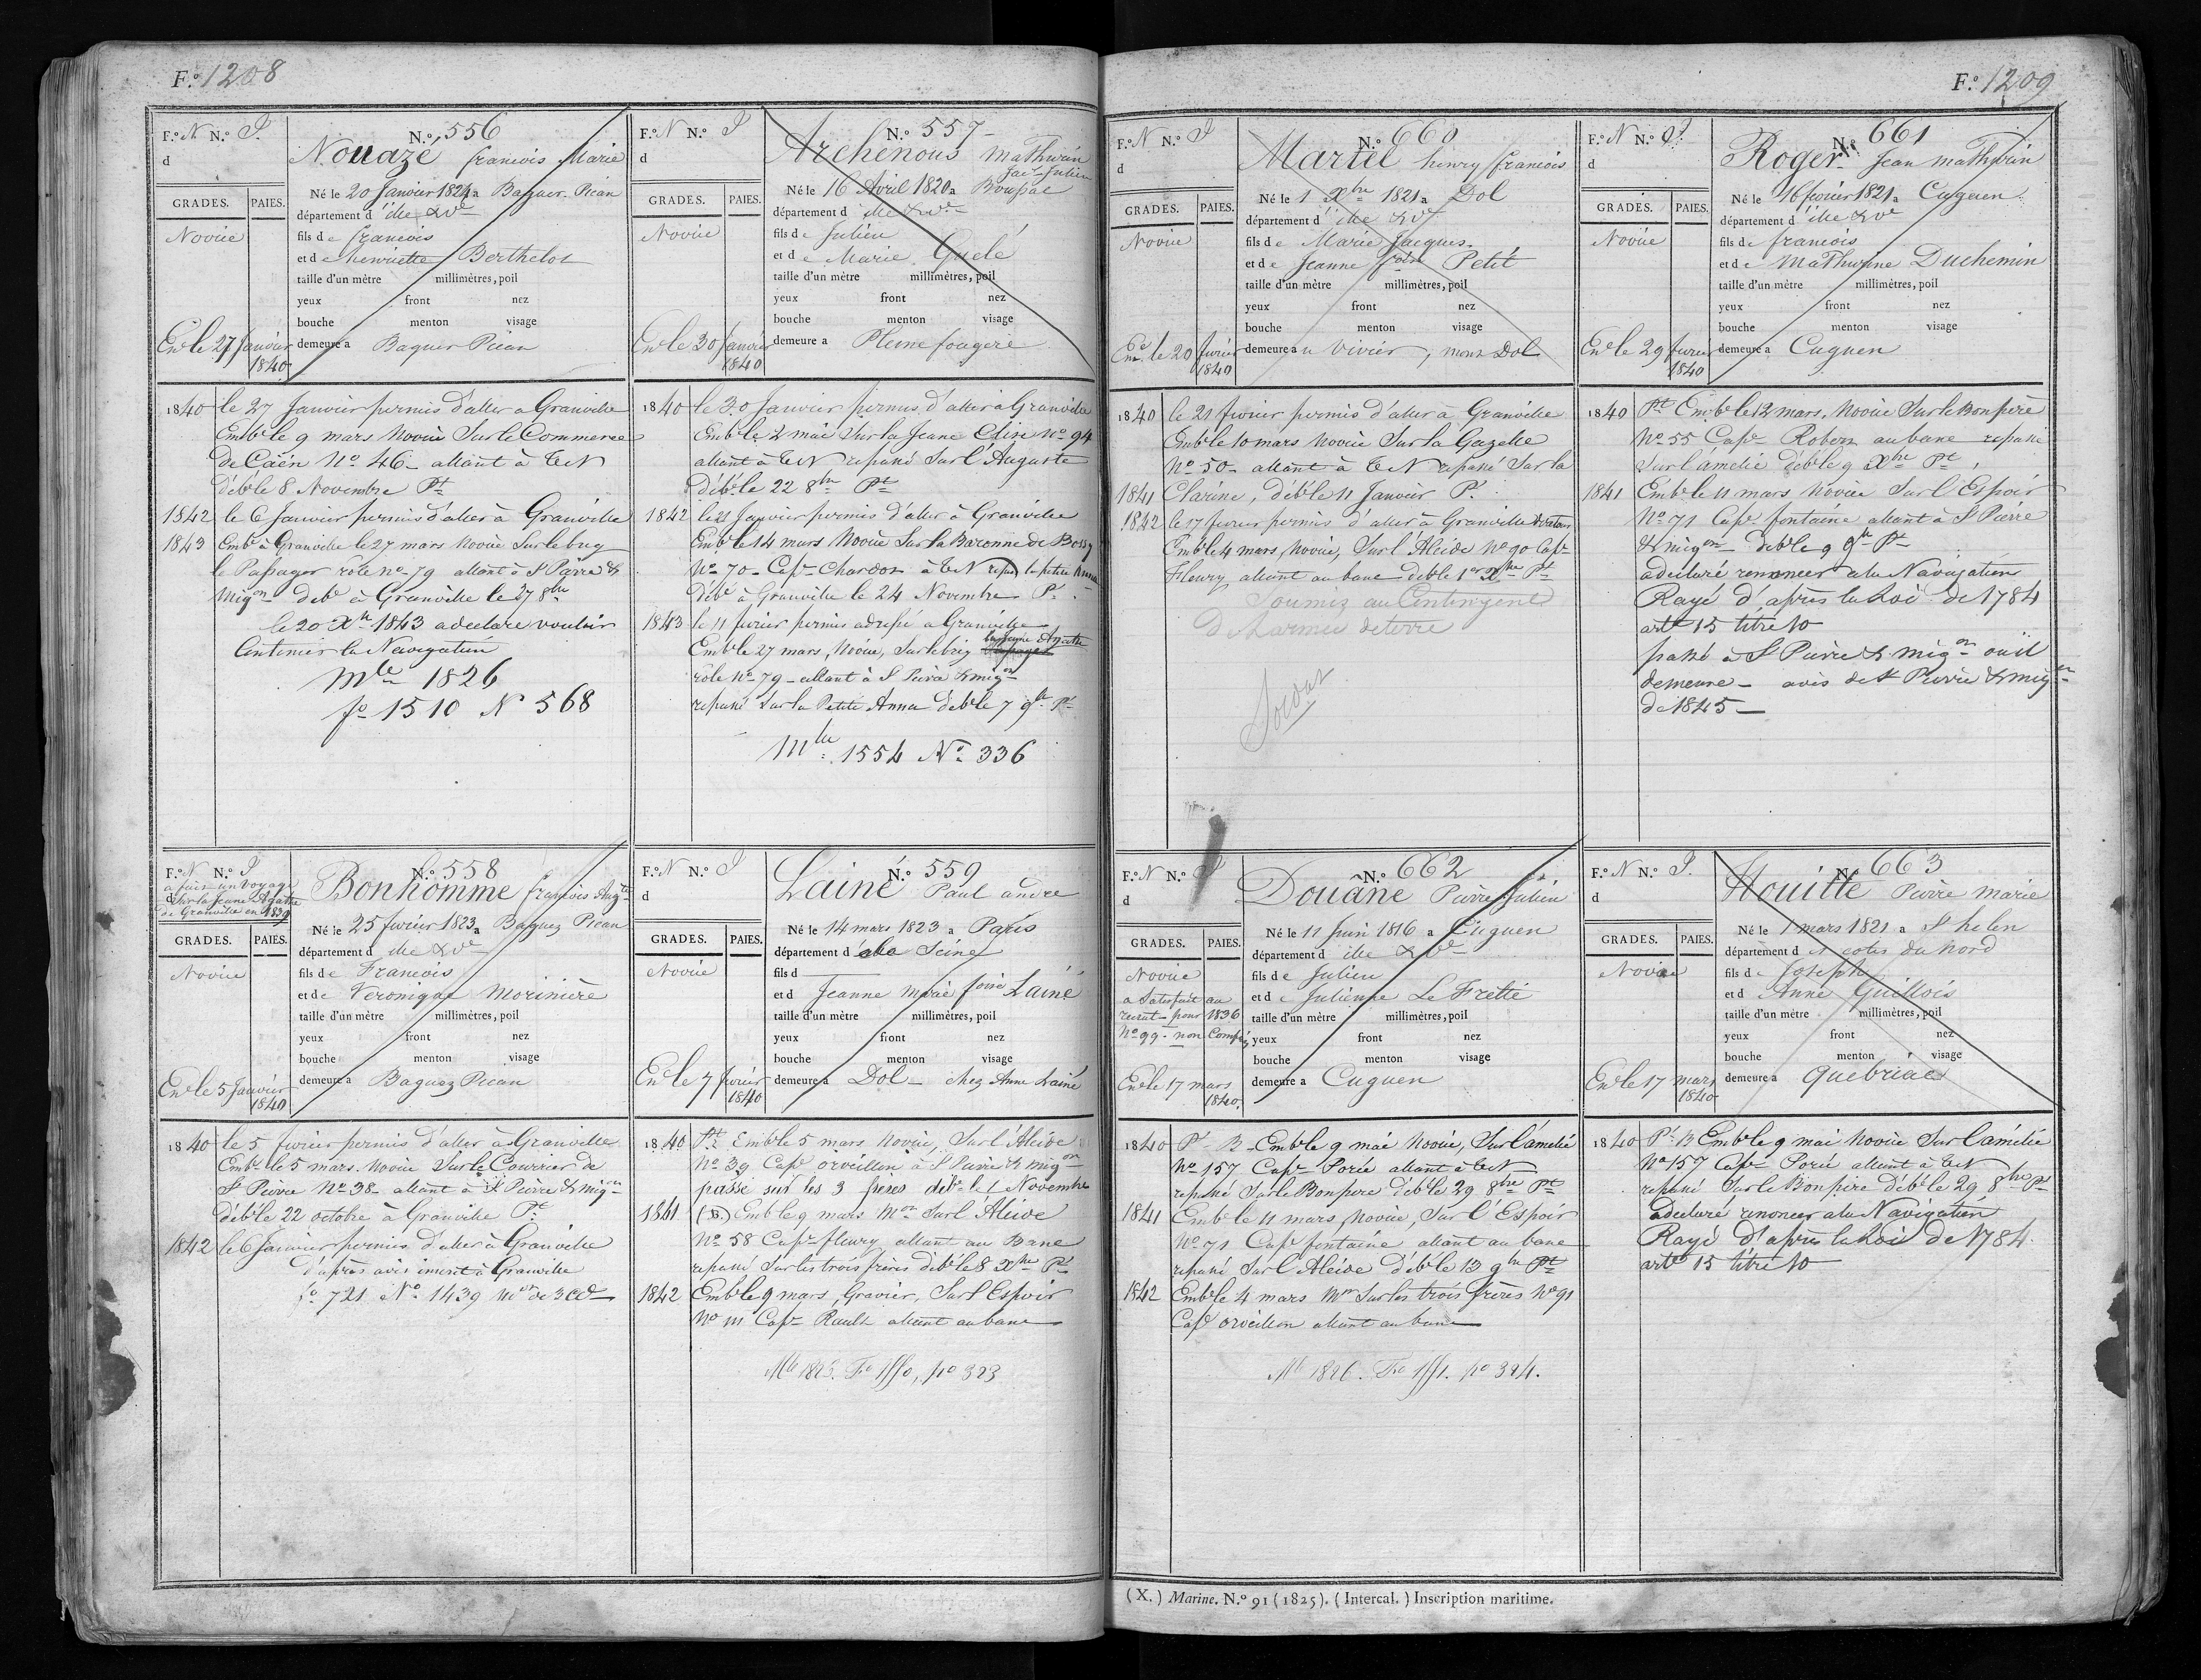 F.º 1208
F.º N N.º P.
d
GRADES. PAIES.
Novice
En le 27 Janvier
1840
N.º 556
Nouazé francois Marie
Né le 20 Janvier 1824 a Baguer-Pican
département d ille & Ve
fils de francois
et de henriette Berthelot
taille d'un mètre millimètres, poil
yeux front nez
bouche menton visage
demeure a Baguer Pican
1840 le 27 Janvier permis d'aller a Granville
Embé le 9 mars Novice Sur le Commerce
de Caën Nº 46 allant à TeN
débé le 8 Novembre Pt
1842 le 6 Janvier permis d'aller à Granville
1843 Embé à Granville le 27 mars Novice Sur le brig
le Passager role nº 79 allant à St Pierre &
Migon debé à Granville le 27 8bre
le 20 Xbre 1843 a declaré vouloir
Continuer la Navigation
Mle 1826
fº 1510 Nº 568
F.º N N.º P
d
GRADES. PAIES.
Novice
En le 30 Janvier
1840
N.º 557
Archenous Mathurin
Jacq Julien
Né le 16 Avril 1820 a Boussac
département d ille & Ve
fils de Julien
et de Marie Guelé
taille d'un mètre millimètres, poil
yeux front nez
bouche menton visage
demeure a Pleine fougère
1840 le 30 Janvier permis d'aller à Granville
Embé le 2 mai Sur la Jeune Elire nº 94
allant à TeN repassé Sur l'Auguste
Débé le 22 8bre Pt
1842 le 21 Janvier permis d'aller à Granville
Embé le 14 mars Novice Sur la Baronne de Bossy
Nº 70 Cape Chardon à TeN repas la petite Anna
débé à Granville le 24 Novembre P.
1843 le 11 fevrier permis adressé a Granville
la Jeune Agathe
Embé le 27 mars, Novice, Sur le brig
role Nº 79 allant à St Peire & migon
repassé Sur la Petite Anna debé le 7 9bre Pt
Mle 1554 Nº 336
F.º N N.º P
a fait un Voyage
Sur la Jeune Agathe
de Granville en 1839
GRADES. PAIES.
Novice
En le 5 Janvier
1840
N.º 558
Bonhomme françois Augte
Né le 25 fevrier 1823 a Baguez Pican
département d ille & Ve
fils de Francois
et de Veronique Morinière
taille d'un mètre millimètres, poil
yeux front nez
bouche menton visage
demeure a Baguez Pican
1840 le 5 fevrier permis d'aller à Granville
Embé le 5 mars. Novice Sur le Courrier de
St Pierre Nº 38 allant à St Pierre & migon
débé le 22 octobre à Granville Pt
1842 le 6 Janvier permis d'aller à Granville
d'après avis inscrit à Granville
fº 721 Nº 1439 Mon de 3e Cl
F.º N N.º P
d
GRADES. PAIES.
Novice
En le 7 fevrier
1840
N.º 559
Lainé Paul andre
Né le 14 mars 1823 a Paris
département de la Seine
fils d
et d Jeanne Marie foise Lainé
taille d'un mètre millimètres, poil
yeux front nez
bouche menton visage
demeure a Dol chez Anne Lainé
1840 Pt Embé le 5 mars Novice, Sur l'Alcide
Nº 39 Cape orveillon à St Pierre & migon
passé sur les 3 frères debé le 1 Novembre
1841 (B) Embé le 9 mars Mon Sur l'Alcide
Nº 58 Cape fleury allant au Banc
repassé Sur les trois frères débé le 8 Xbre Pt
1842 Embé le 9 mars, Gravier, Sur l'Espoir
Nº 111 Cape Rault allant au banc
Mle 1825. Fº 1550, nº 323
F.º 1209
F.º N N.º P
d
GRADES. PAIES.
Novice
En le 20 fevrier
1840
N.º 660
Martel henry francois
Né le 1 Xbre 1821 a Dol
département d ille & Ve
fils de Marie Jacques
et de Jeanne foise Petit
taille d'un mètre millimètres, poil
yeux front nez
bouche menton visage
demeure au Vivier, mont Dol
1840 le 21 fevrier permis d'aller à Granville
Embé le 10 mars Novice Sur la Gazelle
Nº 50 allant à TeN repassé Sur la
1841 Clarine, débé le 11 Janvier P.
1842 le 17 fevrier permis d'aller à Granville
Embé le 4 mars, Novice, Sur l'Alcide Nº 90 Cape
Fleury allant au banc debé le 1er Xbre Pt
Soumis au Contingent
de l'armée de terre
F.º N N.º P.
d
GRADES. PAIES.
Novice
En le 29 fevrier
1840
N.º 661
Roger Jean Mathurin
Né le 16 fevrier 1821 a Cuguen
département d ille & Ve
fils de francois
et de Mathurine Duchemin
taille d'un mètre millimètres, poil
yeux front nez
bouche menton visage
demeure a Cuguen
1840 Pt Embé le 12 mars, Novice Sur le Bonpère
Nº 55 Cape Robert au banc repassé
Sur l'amélie débé le 9 Xbre Pt
1841 Embé le 11 mars Novice Sur l'Espoir
Nº 71 Cape fontaine allant à St Pierre
& migon debé le 9 9bre Pt
a declaré renoncer a la Navigation
Rayé d'après la Loi de 1784
arte 15 titre 10
passé à St Pierre & migon ou il
demeure avis de St Pierre & migon
de 1845
F.º N N.º P
d
GRADES. PAIES.
Novice
a Satisfait au
recrut pour 1836
Nº 99 non Compris
En le 17 mars
1840.
N.º 662
Douâne Pierre Julien
Né le 11 Juin 1816 a Cuguen
département d ille & Ve
fils de Julien
et de Julienne Le Frettié
taille d'un mètre millimètres, poil
yeux front nez
bouche menton visage
demeure a Cuguen
1840 Pt B Embé le 9 mai Novice, Sur l'amelie
Nº 157 Cape Porée allant à TeN
repassé Sur le Bonpere débé le 29 8bre Pt
1841 Embé le 11 mars, Novice, Sur l'Espoir
Nº 71 Cape fontaine allant au banc
repassé Sur l'Alcide débé le 13 9bre Pt
1842 Embé le 4 mars Mon Sur les trois frères Nº 91
Cape orveillon allant au banc
Mle 1826. Fº 1551. nº 324.
F.º N N.º P.
d
GRADES. PAIES.
Novice
En le 17 mars
1840
N.º 663
Houitte Pierre Marie
Né le 1 mars 1821 a St helen
département des cotes du Nord
fils de Joseph
et d Anne Guillois
taille d'un mètre millimètres, poil
yeux front nez
bouche menton visage
demeure a Québriac
1840 Pt B Embé le 9 mai Novice Sur l'amélie
Nº 157 Cape Porée allant à TeN
repassé Sur le Bonpère débé le 29 8bre Pt
a declaré renoncer a la Navigation
Rayé d'après la Loi de 1784.
arte 15 titre 10
(X.) Marine. N.º 91 (1825). (Intercal.) Inscription maritime.